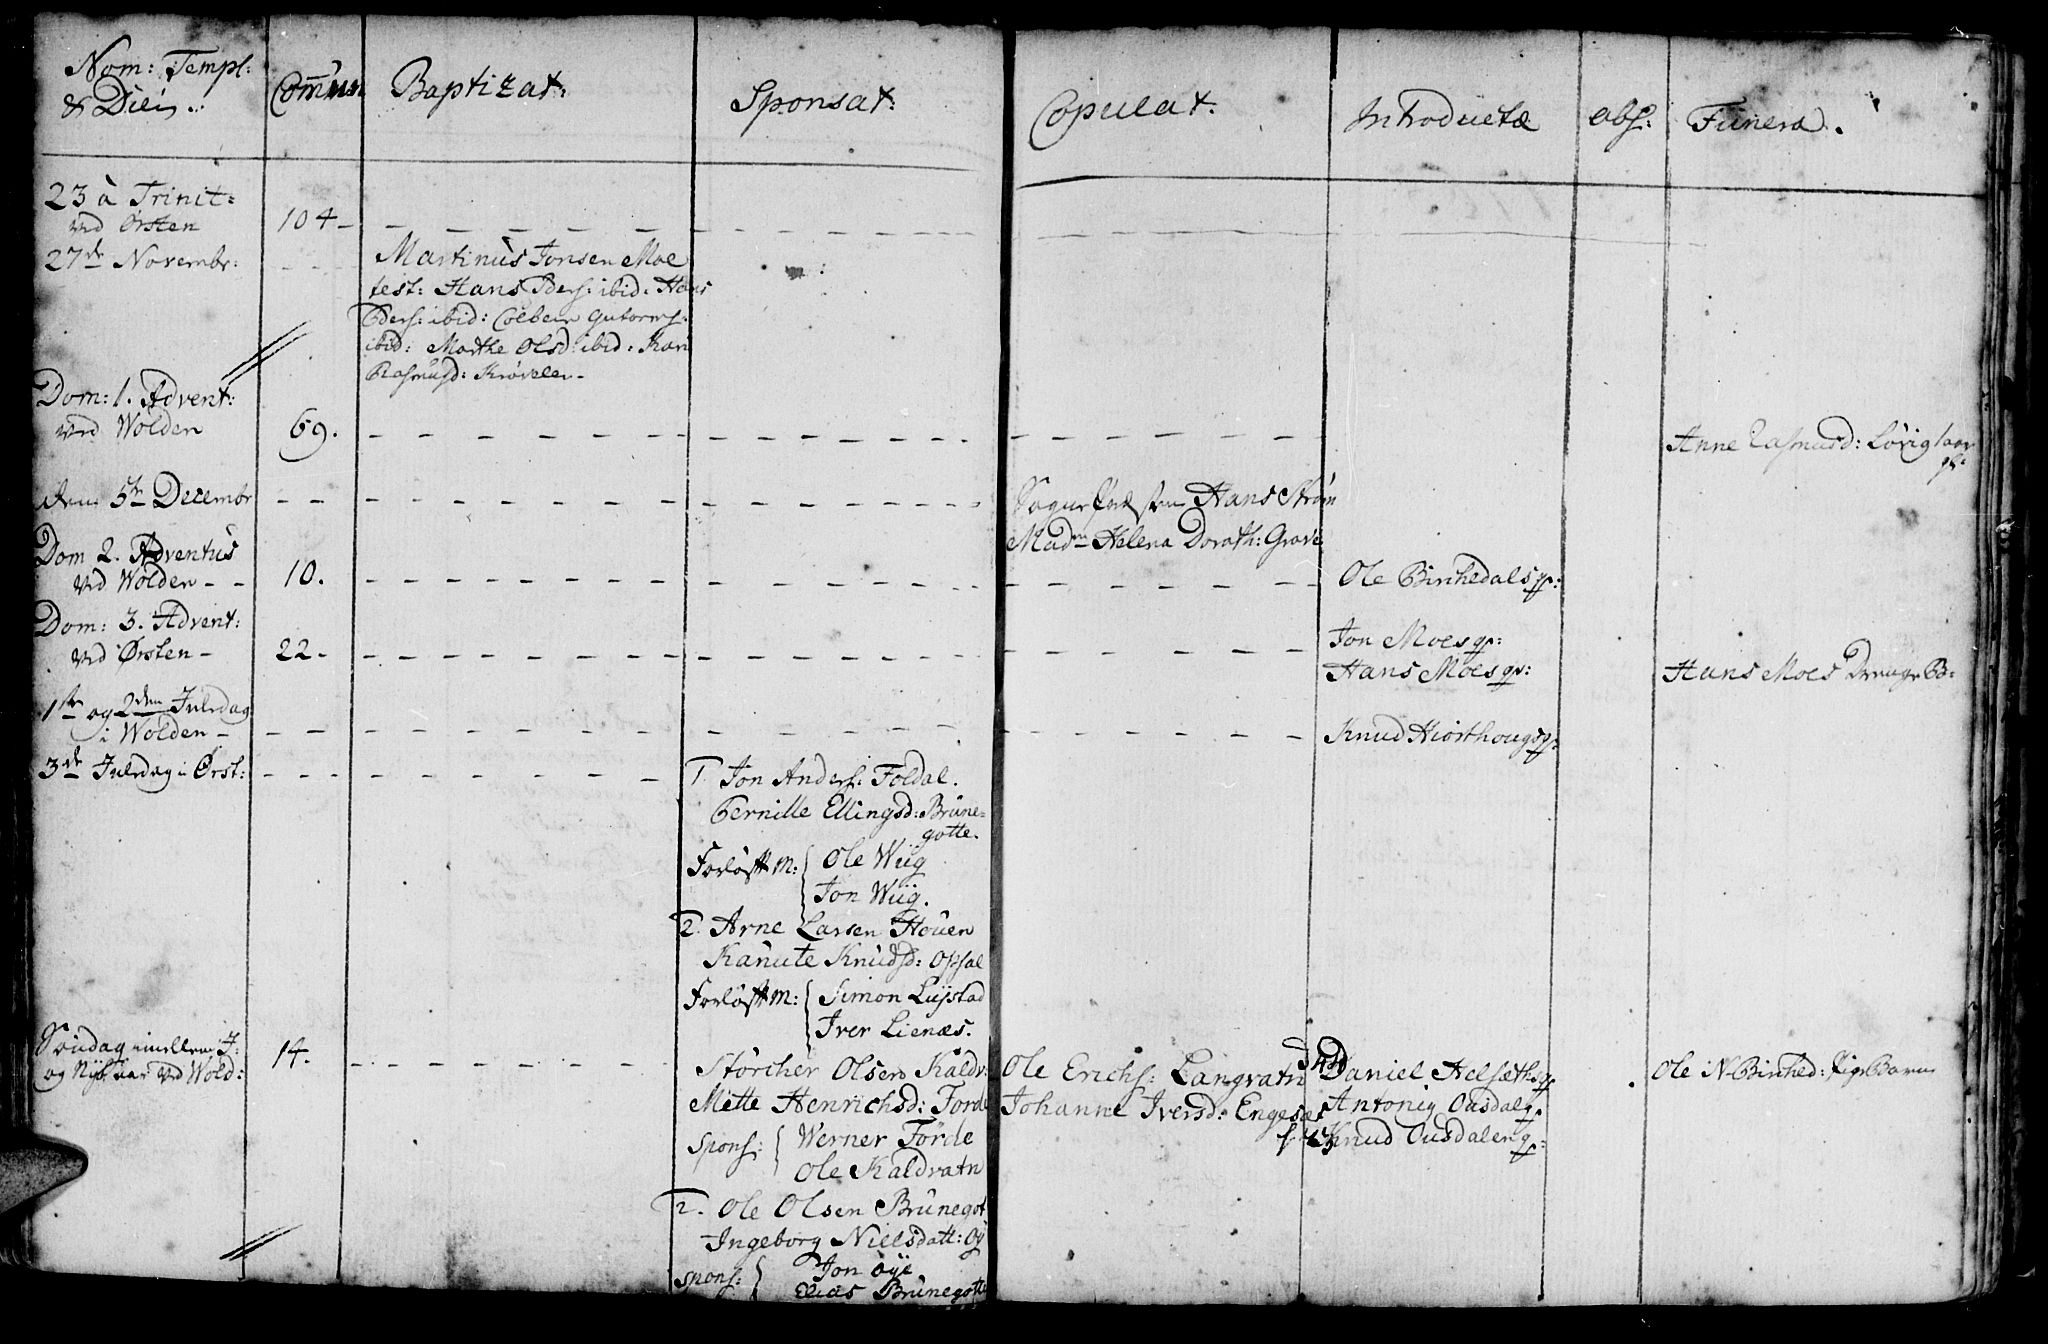 Nom: Templ:
& Diei.
Comun
Baptizat:
Sponsat:
Copulat:
Introductæ
abs:
Funera.
23 à Trinit:
vid Ørsten
104
27de Novembr:
Martinus Jonsen Moe
test: Hans Pders: ibid: Hans
Pders: ibid: Colbein Gutorms:
ibid: Marthe Olsd: ibid: Kari
Rasmusd: Krøvelen
Dom: 1. Advent:
vid Wolden
69.
Anne Rasmusd: Løvig
den 5te Decembr
Hans Strøm
Madm Helena Dorath: Grave
Dom 2. Adventus
vid Wolden
10.
Ole Birchedals qv:
Dom: 3. Advent:
vid Ørsten
22
Jon Moes qv:
Hans Moes qv:
Hans Moes Drenge B:
1te og 2den Juledag
i Wolden
Knud Hiorthougs qv:
3de Juledag i Ørst:
1. Jon Anders: Foldal.
Pernille Ellingsd: Brune-
gotte.
Forløft M: Ole Wiig
Jon Wiig.
2. Arne Larsen Houen
Kanute Knudsd: Opsal
Forløft M: Simon Lystad
Iver Lienæs.
Søndag imellem J:
og Nyt aar vid Wold:
14.
Storcher Olsen Kaldv:
Mette Henrichsd: Forde
Spons: Werner Forde
Ole Kaldvatn
2. Ole Olsen Brunegot
Ingeborg Nielsdatt: Øy
Spons: Jon Øye
Elias Brunegotte
Ole Erichs: Langvatn
Johanne Iversd: Engeset
Daniel Helsæths qv
Antonig Ousdal qv
Knud Ousdalen qv:
Ole N Birched: Pige Barn